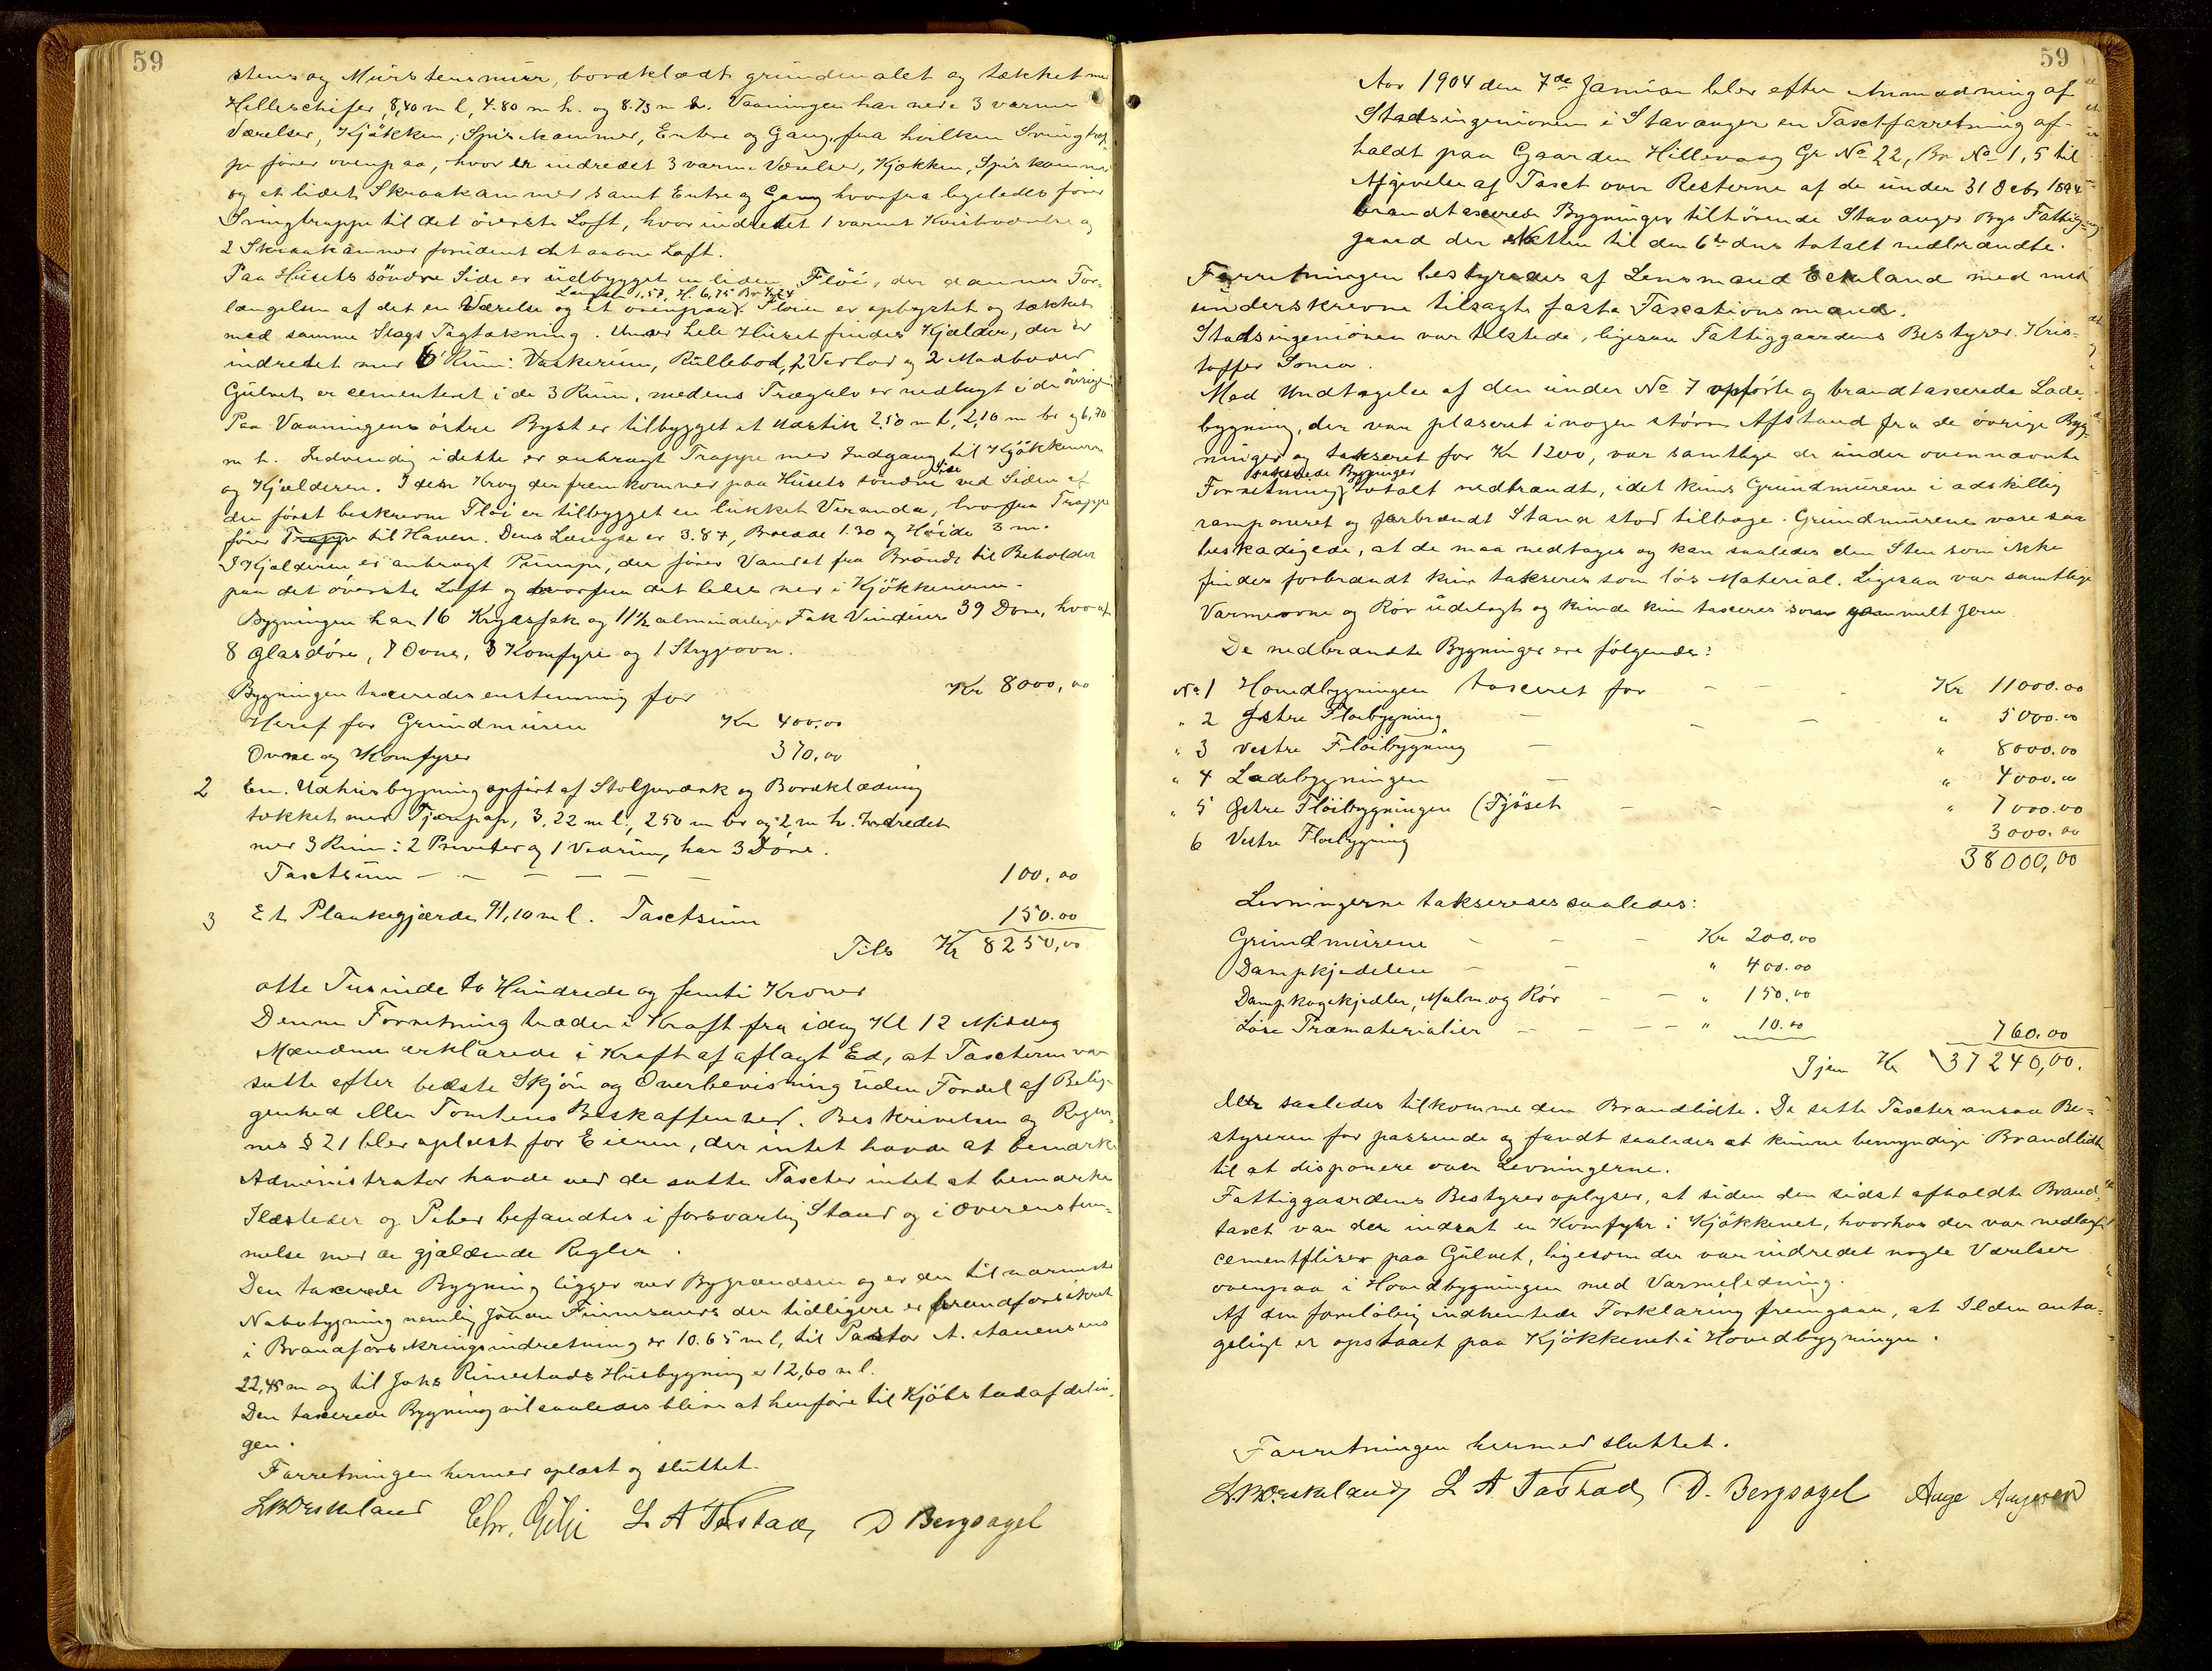 59
stens og Murstensmur, bordklædt grundmalet og tækket med
Helleschifer, 8,40 m l, 4.80 m h. og 8.73 m b. Vaaningen har nede 3 varme
Værelser, Kjøkken, Spiskammer, Entre og Gang, fra hvilken Svingtrap-
pe fører ovenpaa, hvor er indredet 3 varme Værelser, Kjøkken, Spiskammer
og et lidet Skraakammer samt Entre og Gang hvorfra ligeledes fører
Svingtrappe til det øverste Loft, hvor indredet 1 varmt Kvistværelse og
2 Skraakammer forudent det aabne Loft.
Paa Husets søndre Side er udbygget en liden Fløi, der danner For-
Længde 1,57, H. 6,75 Br 4,24
længelsen af det en Værelse og et ovenpaa. Fløien er opbygtet og tækket
med samme Slags Tagtækning. Under hele Huset findes Kjælder, der er
indredet med 6 Rum: Vaskerum, Rullebod, 2 Vedbod og 2 Madboder
Gulvet er cementeret i de 3 Rum, medens Trægulv er nedlagt i de øvrige
Paa Vaaningens østre Byst er tilbygget et Udstik 2.50 m l, 2,10 m br og 6,70
m h. Indvendig i dette er anbragt Trappe med Indgang til Kjøkkenerne
og Kjælderen. I den Krog der fremkommer paa Husets søndre Side ved Siden af
den først beskrevne Fløi er tilbygget en lukket Veranda, hvorfra Trappe
fører Trappe til Haven. Dens Længde er 3.87, Bredde 1.30 og Høide 3 m.
I Kjælderen er anbragt Pumpe, der fører Vandet fra Brønd til Beholder
paa det øverste Loft og hvorfra det ledes ned i Kjøkkenerne.
Bygningen har 16 Krydsfak og 11½ almindelige Fak Vinduer 39 Døre, hvoraf
8 Glasdøre, 7 Ovne, 3 Komfyre og 1 Strygeovn.
Bygningen taxeredes enstemmig for Kr 8000,00
Heraf for Grundmuren Kr 400,00
Ovne og Komfyrer 370,00
2 En Udhusbygning opført af Stolpeværk og Bordklædning
tækket med Tjærepap, 3.22 m l, 2.50 m br og 2 m h. Indredet
med 3 Rum: 2 Priveter og 1 Vedrum, har 3 Døre.
Taxtsum - - - - - - 100,00
3 Et Plankegjærde 91,10 m l. Taxtsum 150.00
Tils Kr 8250,00
otte Tusinde to Hundrede og femti Kroner
Denne Forretning træder i Kraft fra idag Kl 12 Middag
Mændene erklærede i Kraft af aflagt Ed, at Taxterne var
satte efter bedste Skjøn og Overbevisning uden Fordel af Belig-
genhed eller Tomtens Beskaffenhed. Beskrivelsen og Regler-
nes § 21 blev oplæst for Eieren, der intet havde at bemærke
Administrator havde ved de satte Taxter intet at bemærke
Ildsteder og Piber befandtes i forsvarlig Stand og i Overenstem-
melse med de gjældende Regler.
Den taxerede Bygning ligger ved Bygrændsen og er der til nærmeste
Nabobygning nemlig Johan Finnesands der tidligere er brandforsikret
i Brandforsikringsindretning er 10.65 m l, til Pastor A.
22,45 m og til Johs Rimestads Husbygning er 12,60 m l.
Den taxerede Bygning vil saaledes blive at henføre til Kjøbstadafdelin-
gen.
Forretningen hermed oplæst og sluttet.
Chr. Gilje L A Tastad, D Bergsagel
59
Aar 1904 den 7de Januar blev efter Anmodning af
Stadsingeniøren i Stavanger en Taxtforretning af-
holdt paa Gaarden Hillevaag Gr No 22, Br No 1, 5 til
Afgivelse af Taxt over Resterne af de under 31 Octbr 1894
brandtaxerede Bygninger tilhørende Stavanger Bys Fattig-
gaard der Natten til den 6te dns totalt nedbrændte.
Forretningen bestyredes af Lensmand Eskeland med med-
underskrevne tilsagte faste Taxationsmænd.
Stadsingeniøren var tilstede, ligesaa Fattiggaardens Bestyrer Kris-
toffer Soma.
Med Undtagelse af den under No 7 opførte og brandtaxerede Lade-
bygning, der var plaseret i nogen større Afstand fra de øvrige Byg-
ninger og takseret for Kr 1200, var samtlige de under ovennævnte
takserede Bygninger
Forretning totalt nedbrændt, idet kuns Grundmurene i adskillig
ramponeret og forbrændt Stand stod tilbage. Grundmurene vare saa
beskadigede, at de maa nedtages og kan saaledes den Sten som ikke
findes forbrændt kun takseres som løs Material. Ligesaa var samtlige
Varmeovne og Rør ødelagt og kunde kun taxeres som gammelt Jern.
De nedbrændte Bygninger ere følgende:
No 1 Hovedbygningen taxeret for - - - Kr 11000.00
" 2 Østre Fløibygning - - - " 5000.00
" 3 Vestre Fløibygning - " 8000.00
" 4 Ladebygningen - " 4000.00
" 5 Østre Fløibygningen (Fjøset - - " 7000.00
6 Vestre Fløibygning 3000.00
38000,00
Levningerne takseredes saaledes:
Grundmurene - - - Kr 200,00
Dampkjedelen - - " 400.00
Dampkogekjedler, Malm og Rør - - " 150,00
Løse Træmaterialier - - - - " 10.00 760.00
Igjen Kr 37240,00.
der saaledes tilkomme den Brandlidte. De satte Taxter ansaa Be-
styreren for passende og fandt saaledes at kunne bemyndige Brandlidte
til at disponere over Levningerne.
Fattiggaardens Bestyrer oplyser, at siden den sidst afholdte Brand-
taxt var der indsat en Komfyhr i Kjøkkenet, hvorhos der var nedlagt
cementfliser paa Gulvet, ligesom der var indredet nogle Værelser
ovenpaa i Hovedbygningen med Varmeledning.
Af den foreløbig indhentede Forklaring fremgaar, at Ilden anta-
geligt er opstaaet paa Kjøkkenet i Hovedbygningen.
Forretningen hermed sluttet.
L A Tastad, D. Bergsagel Aage Aagesen